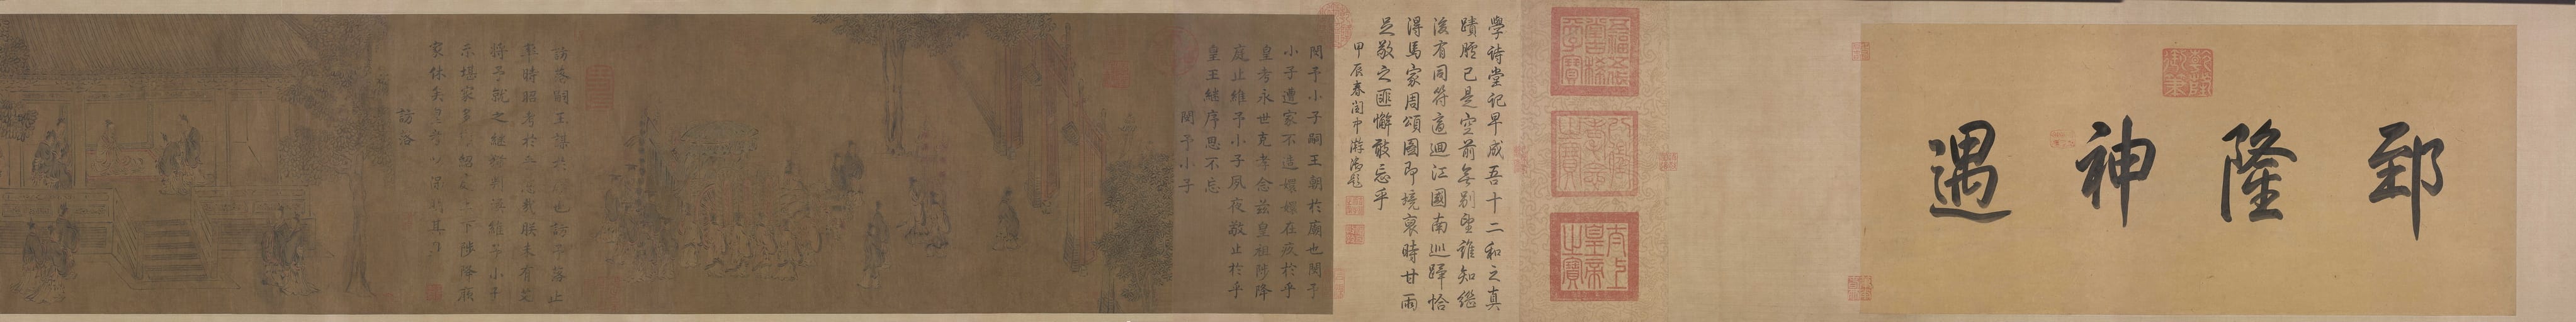 郅隆神遇
乾隆御筆
五福五代堂古稀天子寶
八徵耄念之寶
太上皇帝之寶
學詩堂記早成吾十二和之真
蹟臚已是空前無別望誰知繼
後有同符適迴江國南巡蹕恰
得馬家周頌圖即境裏時甘雨
足敬之匪懈敢忘乎
甲辰春閏中澣御題
閔予小子嗣王朝於廟也閔予
小子遭家不造嬛嬛在疚於乎
皇考永世克孝念茲皇祖陟降
庭止維予小子夙夜敬止於乎
皇王繼序思不忘
閔予小子
訪落嗣王謀於廟也訪予落止
率時昭考於乎悠哉朕未有艾
將予就之繼猶判渙維予小子
未堪家多難紹庭上下陟降厥
家休矣皇考以保明其身
訪落